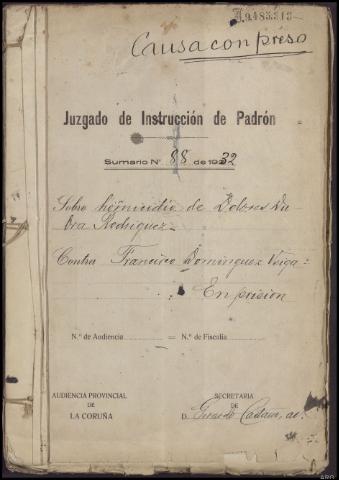 J.9483313
Causa con preso
Juzgado de Instrucción de Padrón
Sumario N.º 88 de 1932
Sobre homicidio de Dolores
Rodriguez
Contra Francisco Dominguez Veiga
En prision
N.º de Audiencia = N.º de Fiscalía
AUDIENCIA PROVINCIAL
DE
LA CORUÑA
SECRETARIA
DE
D. Gerardo